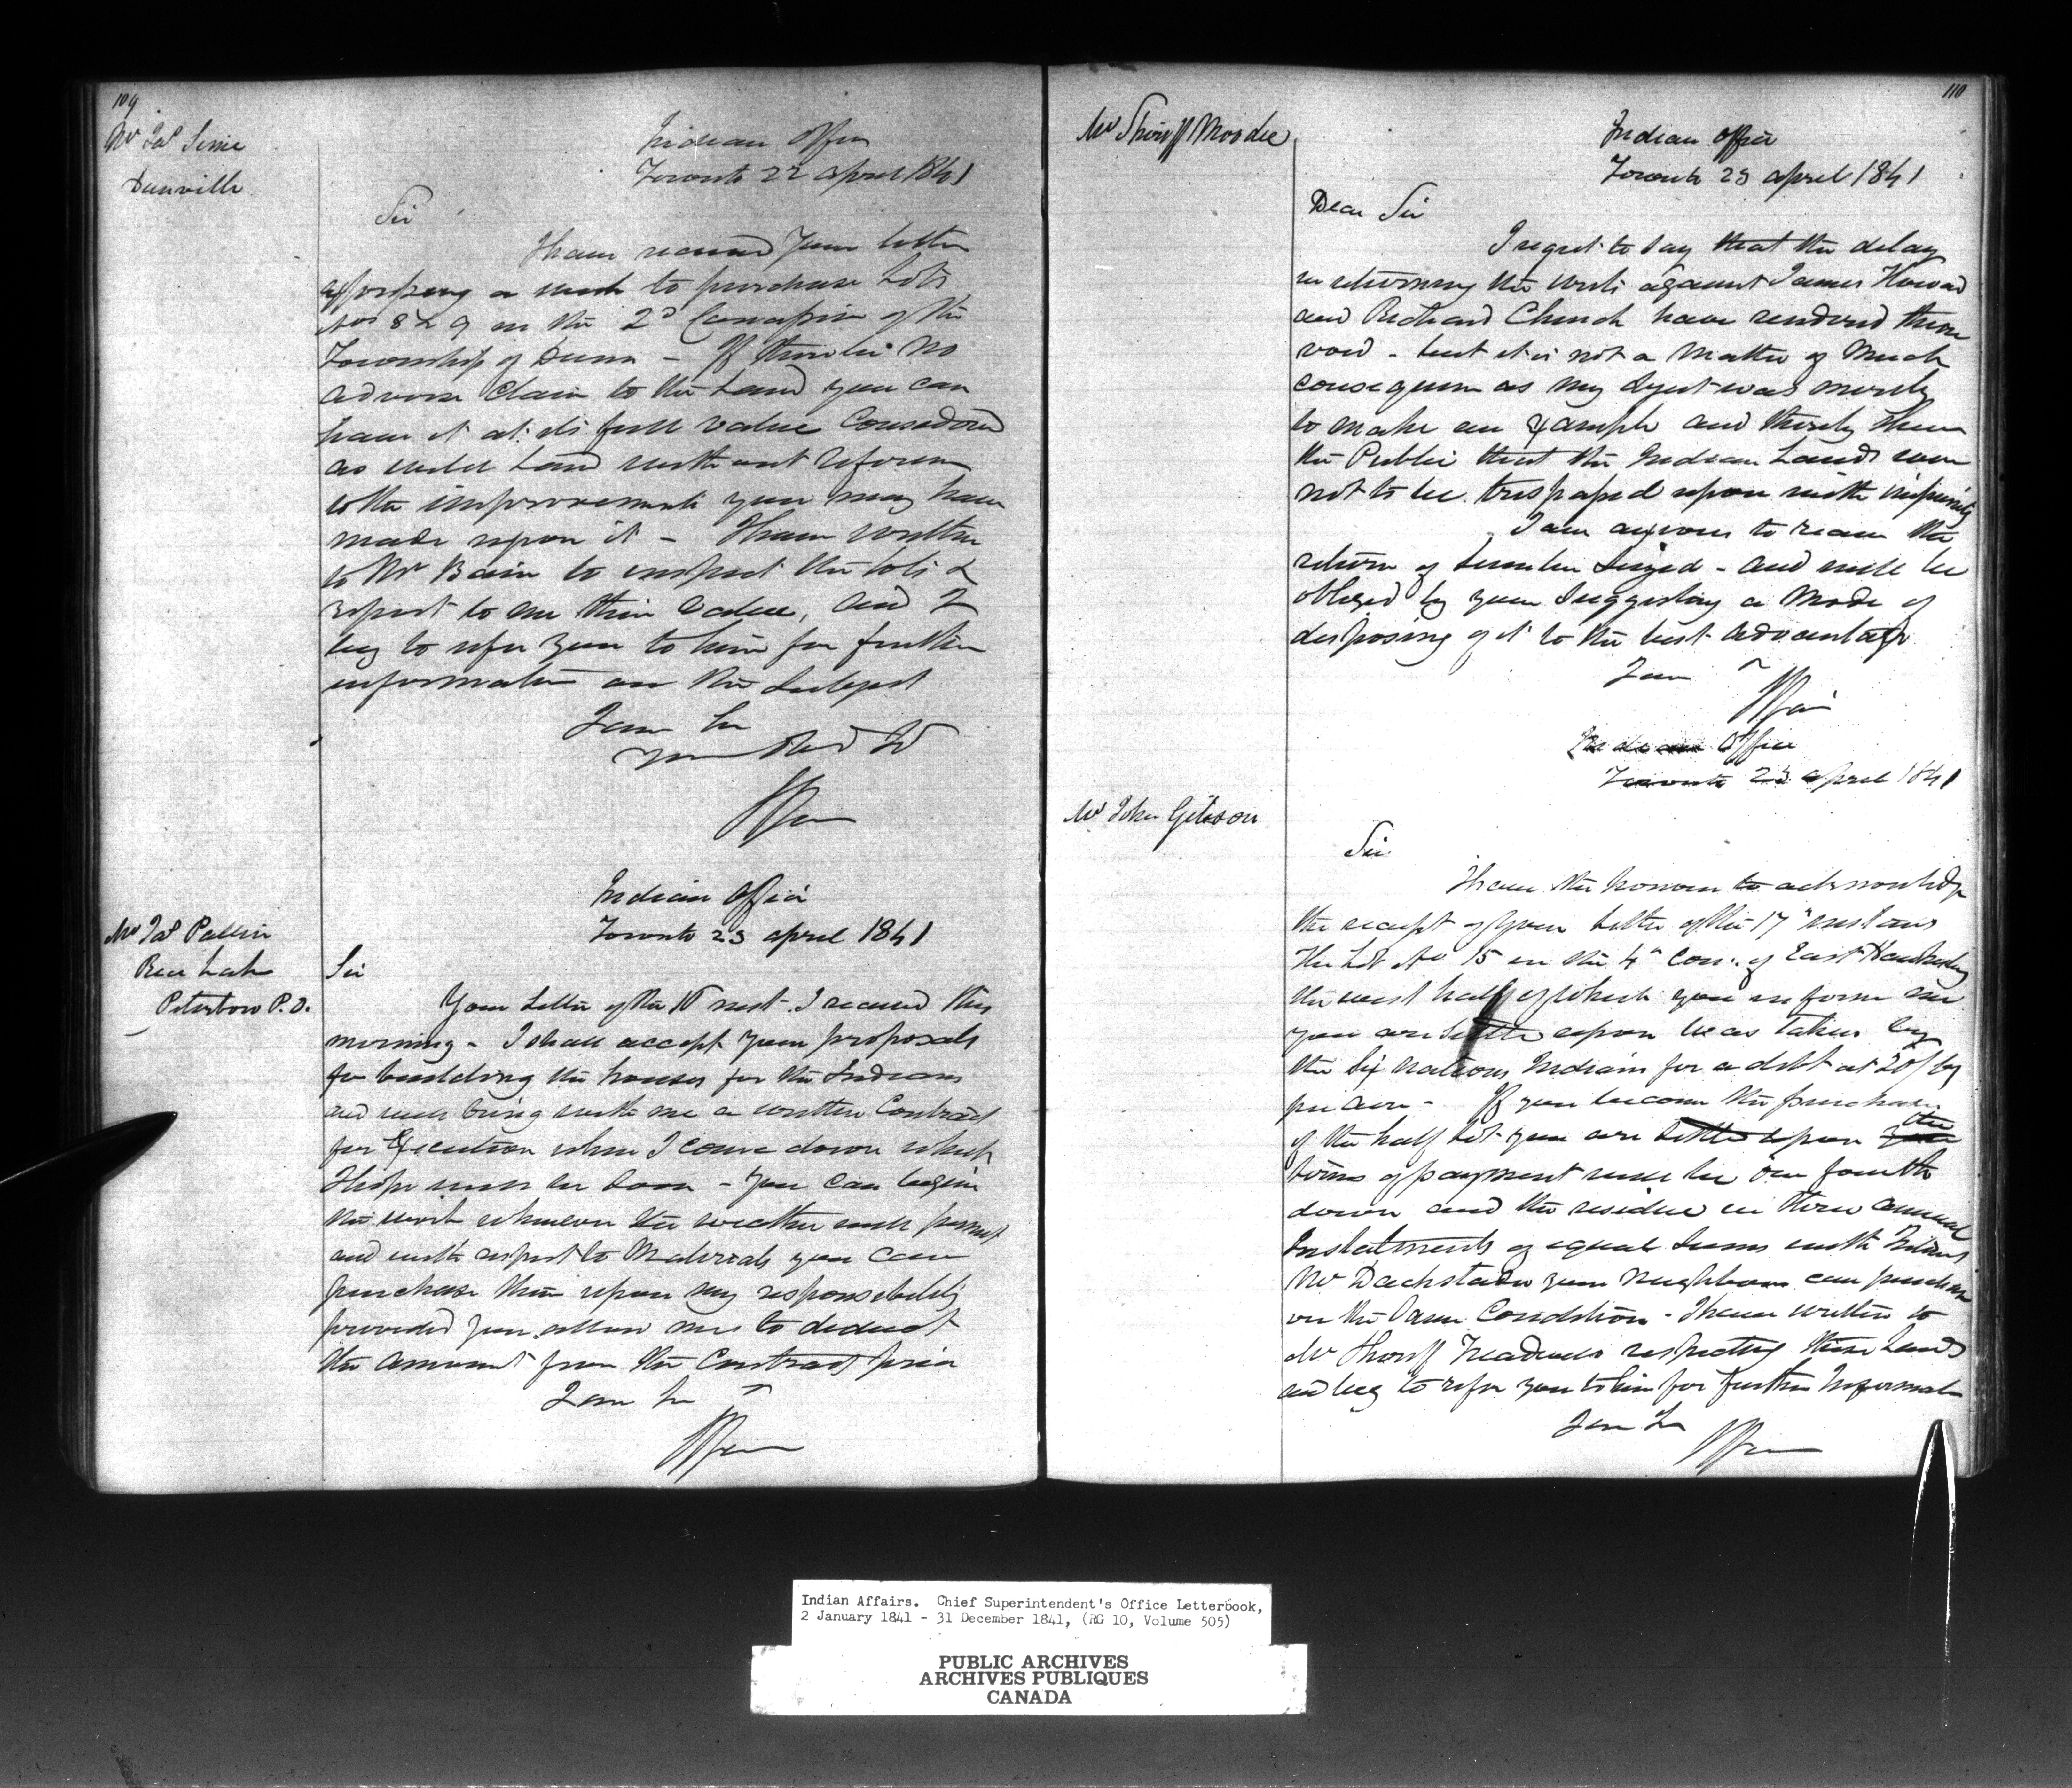 109
Mr Jas
Dunville
Indian Office
Toronto 22 April 1841
Sir
I have received your letter
expressing a wish to purchase Lots
Nos 8 & 9 in the 2d Concession of the
Township of Dunn - If there be no
adverse claim to the Land you can
have it at its full value Considered
as wild Land without reference
to the improvements you may have
made upon it - I have written
to Mr Bain to inspect the lots &
report to me their Value, and I
beg to refer you to him for further
information on the Subject
I am Sir
Your Obed St
Mr Jas
Rice Lake
Peterboro P.O.
Indian Office
Toronto 23 April 1841
Sir
Your Letter of the inst. I received this
morning - I shall accept your proposals
for building the houses for the Indians
and will bring with me a written Contract
for Execution when I come down which
I hope will be soon - You can begin
the work whenever the weather will permit
and with respect to Materials you can
purchase them upon my responsibility
provided you allow me to deduct
the amount from the Contract price
I am Sir
110
Mr Sheriff Moodie
Indian Office
Toronto 23 April 1841
Dear Sir
I regret to say that the delay
in returning the writs against James Howard
and Richard Church have rendered them
void - but it is not a Matter of Much
consequence as my object was merely
to make an Example and thereby shew
the Public that the Indian Lands were
not to be trespassed upon with impunity
I am anxious to receive the
return of Lumber Seized - and will be
obliged by your Suggesting a Mode of
disposing of it to the best advantage
I am
Indian Office
Toronto 23 April 1841
Mr John Gibson
Sir
I have the honour to acknowledge
the receipt of your Letter of the 17th instant
The Lot No 15 in the 4th Con. of East Hawkesbury
the west half of which you inform me
you are settled upon was taken by
the Six Nations Indians for a debt at 20/ Cy
per acre - If you become the purchaser
of the half lot you are settled upon the
terms of payment will be one fourth
down and the residue in three annual
Instalments of equal Sums with Interest
Mr your Neighbour can purchase
on the Same Condition - I have written to
Mr Sheriff Treadwell respecting these Lands
and beg to refer you to him for further Information
I am Sir
Indian Affairs. Chief Superintendent's Office Letterbook,
2 January 1841 - 31 December 1841, (RG 10, Volume 505)
PUBLIC ARCHIVES
ARCHIVES PUBLIQUES
CANADA